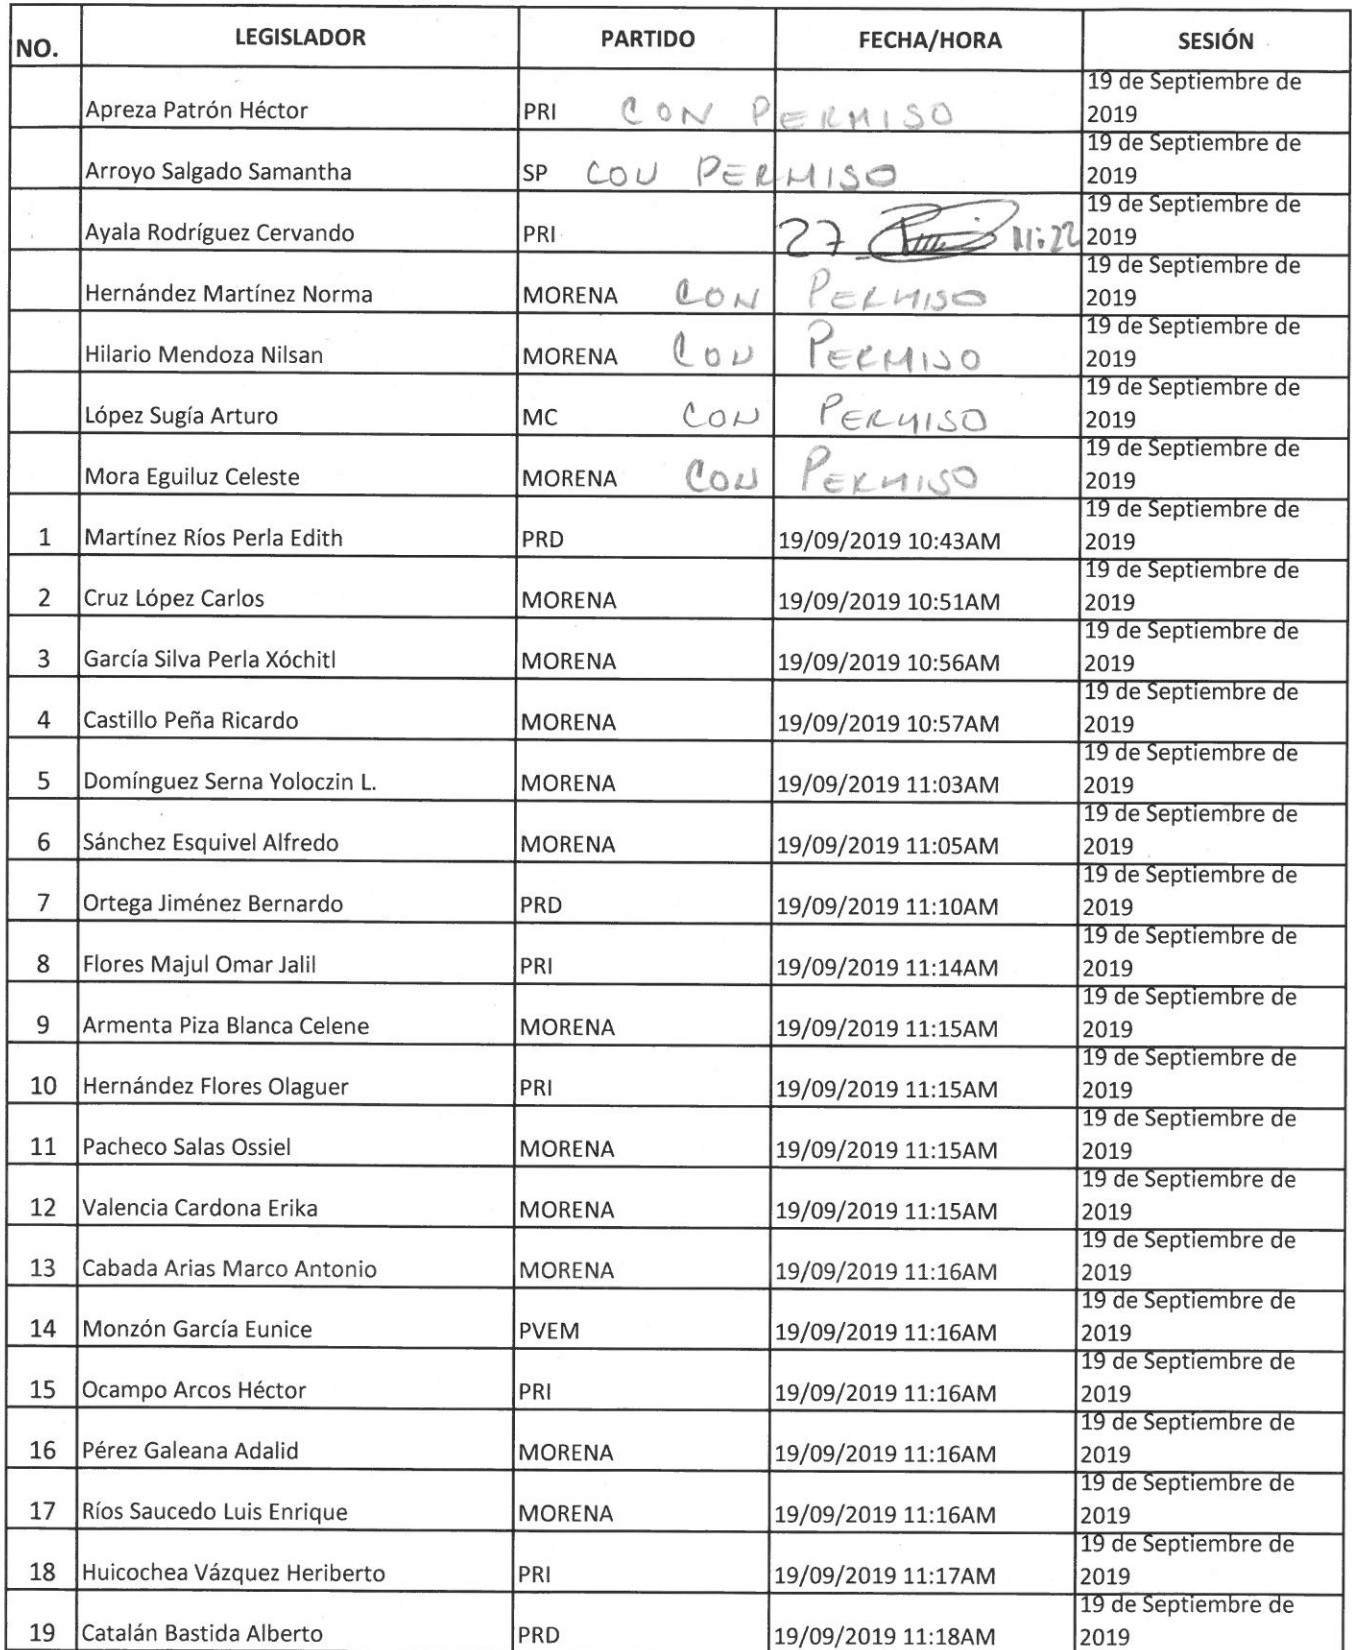 NO. LEGISLADOR PARTIDO FECHA/HORA SESIÓN
19 de Septiembre de
Apreza Patrón Héctor PRI CON PERMISO 2019
19 de Septiembre de
Arroyo Salgado Samantha SP CON PERMISO 2019
19 de Septiembre de
Ayala Rodríguez Cervando PRI 27 11:22 2019
19 de Septiembre de
Hernández Martínez Norma MORENA CON PERMISO 2019
19 de Septiembre de
Hilario Mendoza Nilsan MORENA CON PERMISO 2019
19 de Septiembre de
López Sugía Arturo MC CON PERMISO 2019
19 de Septiembre de
Mora Eguiluz Celeste MORENA CON PERMISO 2019
19 de Septiembre de
1 Martínez Ríos Perla Edith PRD 19/09/2019 10:43AM 2019
19 de Septiembre de
2 Cruz López Carlos MORENA 19/09/2019 10:51AM 2019
19 de Septiembre de
3 García Silva Perla Xóchitl MORENA 19/09/2019 10:56AM 2019
19 de Septiembre de
4 Castillo Peña Ricardo MORENA 19/09/2019 10:57AM 2019
19 de Septiembre de
5 Domínguez Serna Yoloczin L. MORENA 19/09/2019 11:03AM 2019
19 de Septiembre de
6 Sánchez Esquivel Alfredo MORENA 19/09/2019 11:05AM 2019
19 de Septiembre de
7 Ortega Jiménez Bernardo PRD 19/09/2019 11:10AM 2019
19 de Septiembre de
8 Flores Majul Omar Jalil PRI 19/09/2019 11:14AM 2019
19 de Septiembre de
9 Armenta Piza Blanca Celene MORENA 19/09/2019 11:15AM 2019
19 de Septiembre de
10 Hernández Flores Olaguer PRI 19/09/2019 11:15AM 2019
19 de Septiembre de
11 Pacheco Salas Ossiel MORENA 19/09/2019 11:15AM 2019
19 de Septiembre de
12 Valencia Cardona Erika MORENA 19/09/2019 11:15AM 2019
19 de Septiembre de
13 Cabada Arias Marco Antonio MORENA 19/09/2019 11:16AM 2019
19 de Septiembre de
14 Monzón García Eunice PVEM 19/09/2019 11:16AM 2019
19 de Septiembre de
15 Ocampo Arcos Héctor PRI 19/09/2019 11:16AM 2019
19 de Septiembre de
16 Pérez Galeana Adalid MORENA 19/09/2019 11:16AM 2019
19 de Septiembre de
17 Ríos Saucedo Luis Enrique MORENA 19/09/2019 11:16AM 2019
19 de Septiembre de
18 Huicochea Vázquez Heriberto PRI 19/09/2019 11:17AM 2019
19 de Septiembre de
19 Catalán Bastida Alberto PRD 19/09/2019 11:18AM 2019